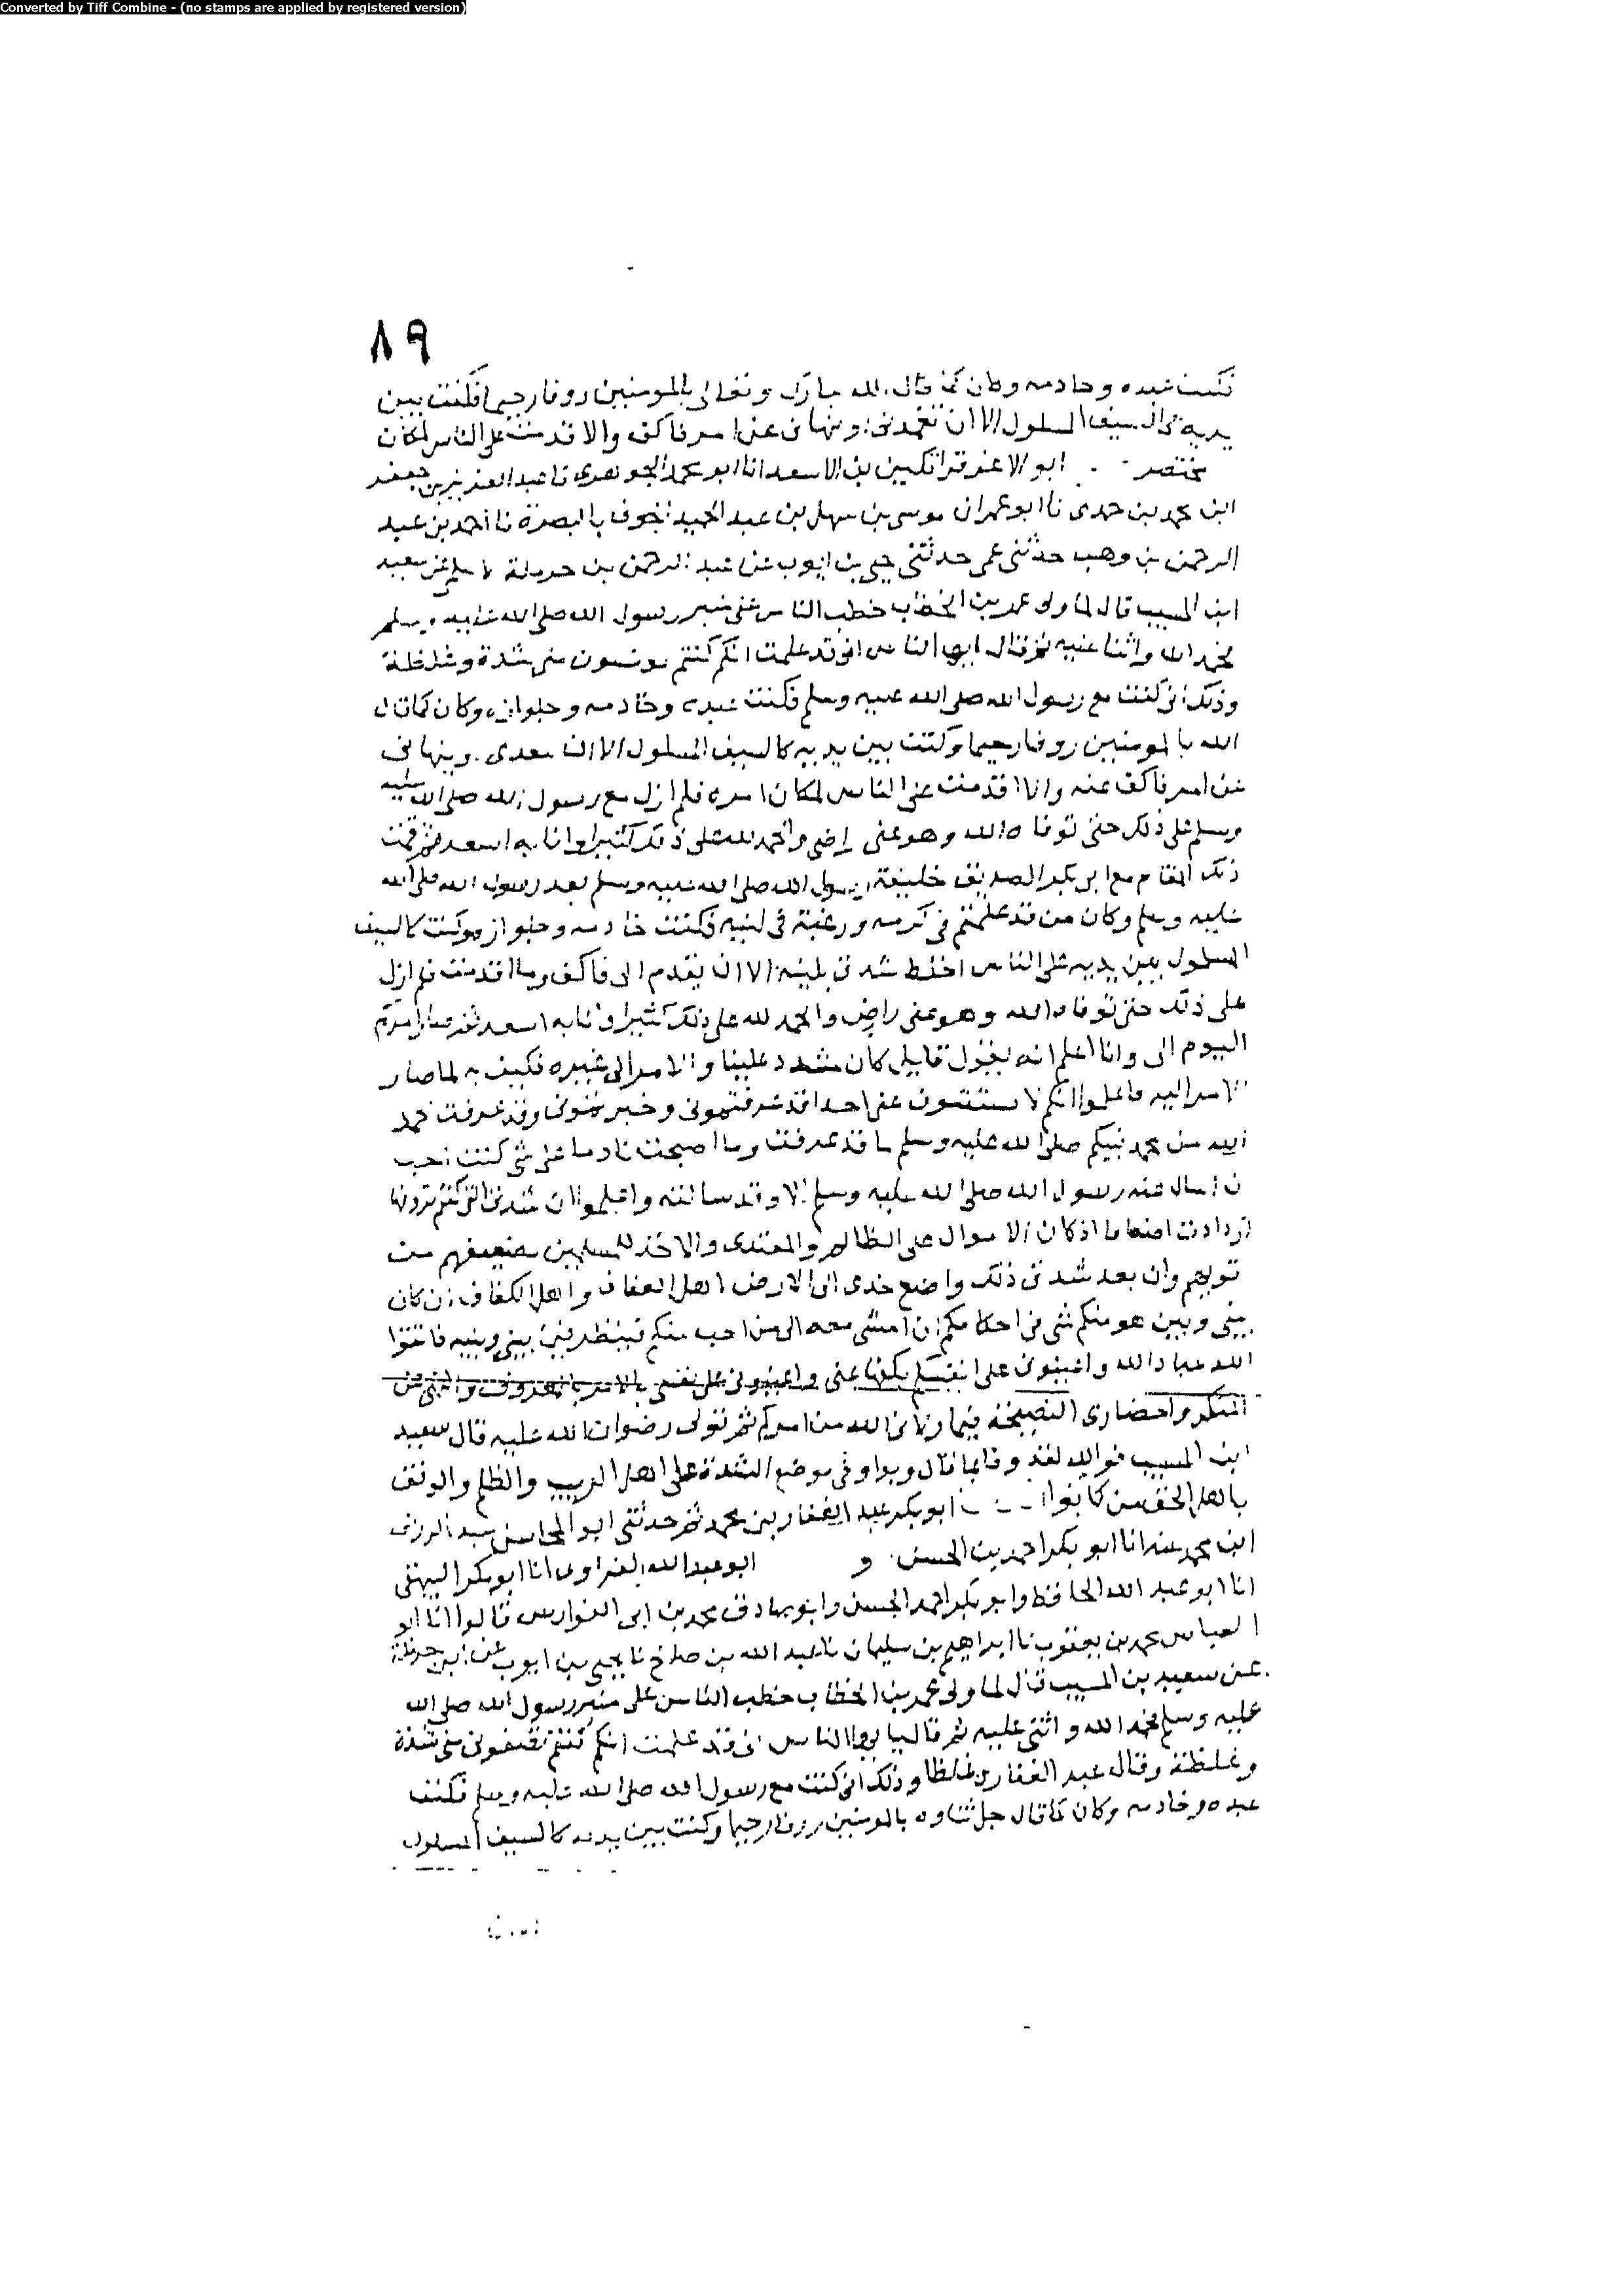 Converted by Tiff Combine - (no stamps are applied by registered version)
٨٩
فكنت عبده وخادمه وكان كما قال الله تبارك وتعالى بالمومنين روفا رحيما فكنت بين
يديه كالسيف المسلول الا ان تغمدنى او ينهانى عن امر فاكف والا قدمت على الناس لمكان
مختصر ابو الاعز قراتكين بن الاسعد انا ابو محمد الجوهرى نا عبد العزيز بن جعفر
ابن محمد بن حمدى نا ابو عمران موسى بن سهل بن عبد الحميد الجونى بالبصرة نا احمد بن عبد
الرحمن بن وهب حدثنى عمى حدثنى يحيى بن ايوب عن عبد الرحمن بن حرملة الاسلمى عن سعيد
ابن المسيب قال لما ولى عمر بن الخطاب خطب الناس على منبر رسول الله صلى الله عليه وسلم
فحمد الله واثنا عليه ثم قال ايها الناس انى قد علمت انكم كنتم تونسون منى شدة وغلظة
وذلك انى كنت مع رسول الله صلى الله عليه وسلم فكنت عبده وخادمه وجلوازه وكان كما قال
الله بالمومنين روفا رحيما وكنت بين يديه كالسيف المسلول الا ان يغمدنى وينهانى
عن امر فاكف عنه وانا اقدمت على الناس لمكان امره فلم ازل مع رسول الله صلى الله عليه
وسلم على ذلك حتى توفاه الله وهو عنى راضى والحمد لله على ذلك كثيرا وانا به اسعد ثم قمت
ذلك المقام مع ابى بكر الصديق خليفة رسول الله صلى الله عليه وسلم بعد رسول الله صلى الله
عليه وسلم وكان من قد علمتم فى كرمه ورغبة فى لينه فكنت خادمه وجلوازه وكنت كالسيف
المسلول بين يديه على الناس اخلط شدتى بلينه الا ان يتقدم الى فاكف وما اقدمت فلم ازل
على ذلك حتى توفاه الله وهو عنى راض والحمد لله على ذلك كثيرا وانا به اسعد ثم صار امركم
اليوم الى وانا اعلم انه يقول قايل كان متشدد علينا والامر الى غيره فكيف به لما صار
الامر اليه فاعلموا انكم لا تستنون عنى احدا قد عرفتمونى وخبرتمونى وقد عرفت بحمد
الله من محمد نبيكم صلى الله عليه وسلم ما قد عرفت وما اصبحت نادما على شى كنت احب
ان اسال عنه رسول الله صلى الله عليه وسلم الا وقد سالته واعلموا ان شدتى التى كنتم ترونها
ازدادت اضعافا اذ كان الاموال على الظالم والمعتدى والاخذ للمسلمين بضعيفهم من
قويهم وان بعد شدتى ذلك واضع خدى الى الارض اهل العفاف واهل الكفاف ان كان
بينى وبين هو منكم شى من احكامكم ان امشى معه الى من احب منكم فينظر فيما بينى وبينه فاتقوا
الله عباد الله واعينونى على انفسكم بكفها عنى واعينونى على نفسى بالامر بالمعروف والنهى عن
المنكر واحضارى النصيحة فيما ولانى الله من امركم ثم تولى رضوان الله عليه قال سعيد
ابن المسيب فوالله لقد وفا بما قال وبدا وفى موضع الشدة على اهل الريب والظلم والرفق
باهل الحق من كانوا ابو بكر عبد الغفار بن محمد ثم حدثنى ابو المحاسن عبد الرزاق
ابن محمد عنه انا ابو بكر احمد بن الحسن و ابو عبد الله الفراوى انا ابو بكر البيهقى
انا ابو عبد الله الحافظ وابو بكر احمد الحسن وابو صادق محمد بن ابى الفوارس قالوا انا ابو
العباس محمد بن يعقوب نا ابراهيم بن سليمان نا عبد الله بن صالح نا يحيى بن ايوب عن ابن حرملة
عن سعيد بن المسيب قال لما ولى عمر بن الخطاب خطب الناس على منبر رسول الله صلى الله
عليه وسلم فحمد الله واثنى عليه ثم قال يا ايها الناس انى قد علمت انكم كنتم منى شدة
وغلظة وقال عبد الغفار وغلظا وذلك انى كنت مع رسول الله صلى الله عليه وسلم فكنت
عبده وخادمه وكان كما قال جل ثناوه بالمومنين روفا رحيما وكنت بين يديه كالسيف المسلول